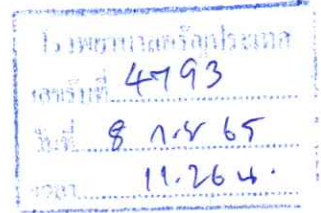 โรงพยาบาลอรัญประเทศ
เลขรับที่ 4793
วันที่ 8 ก.ย 65
เวลา 11.26 น.